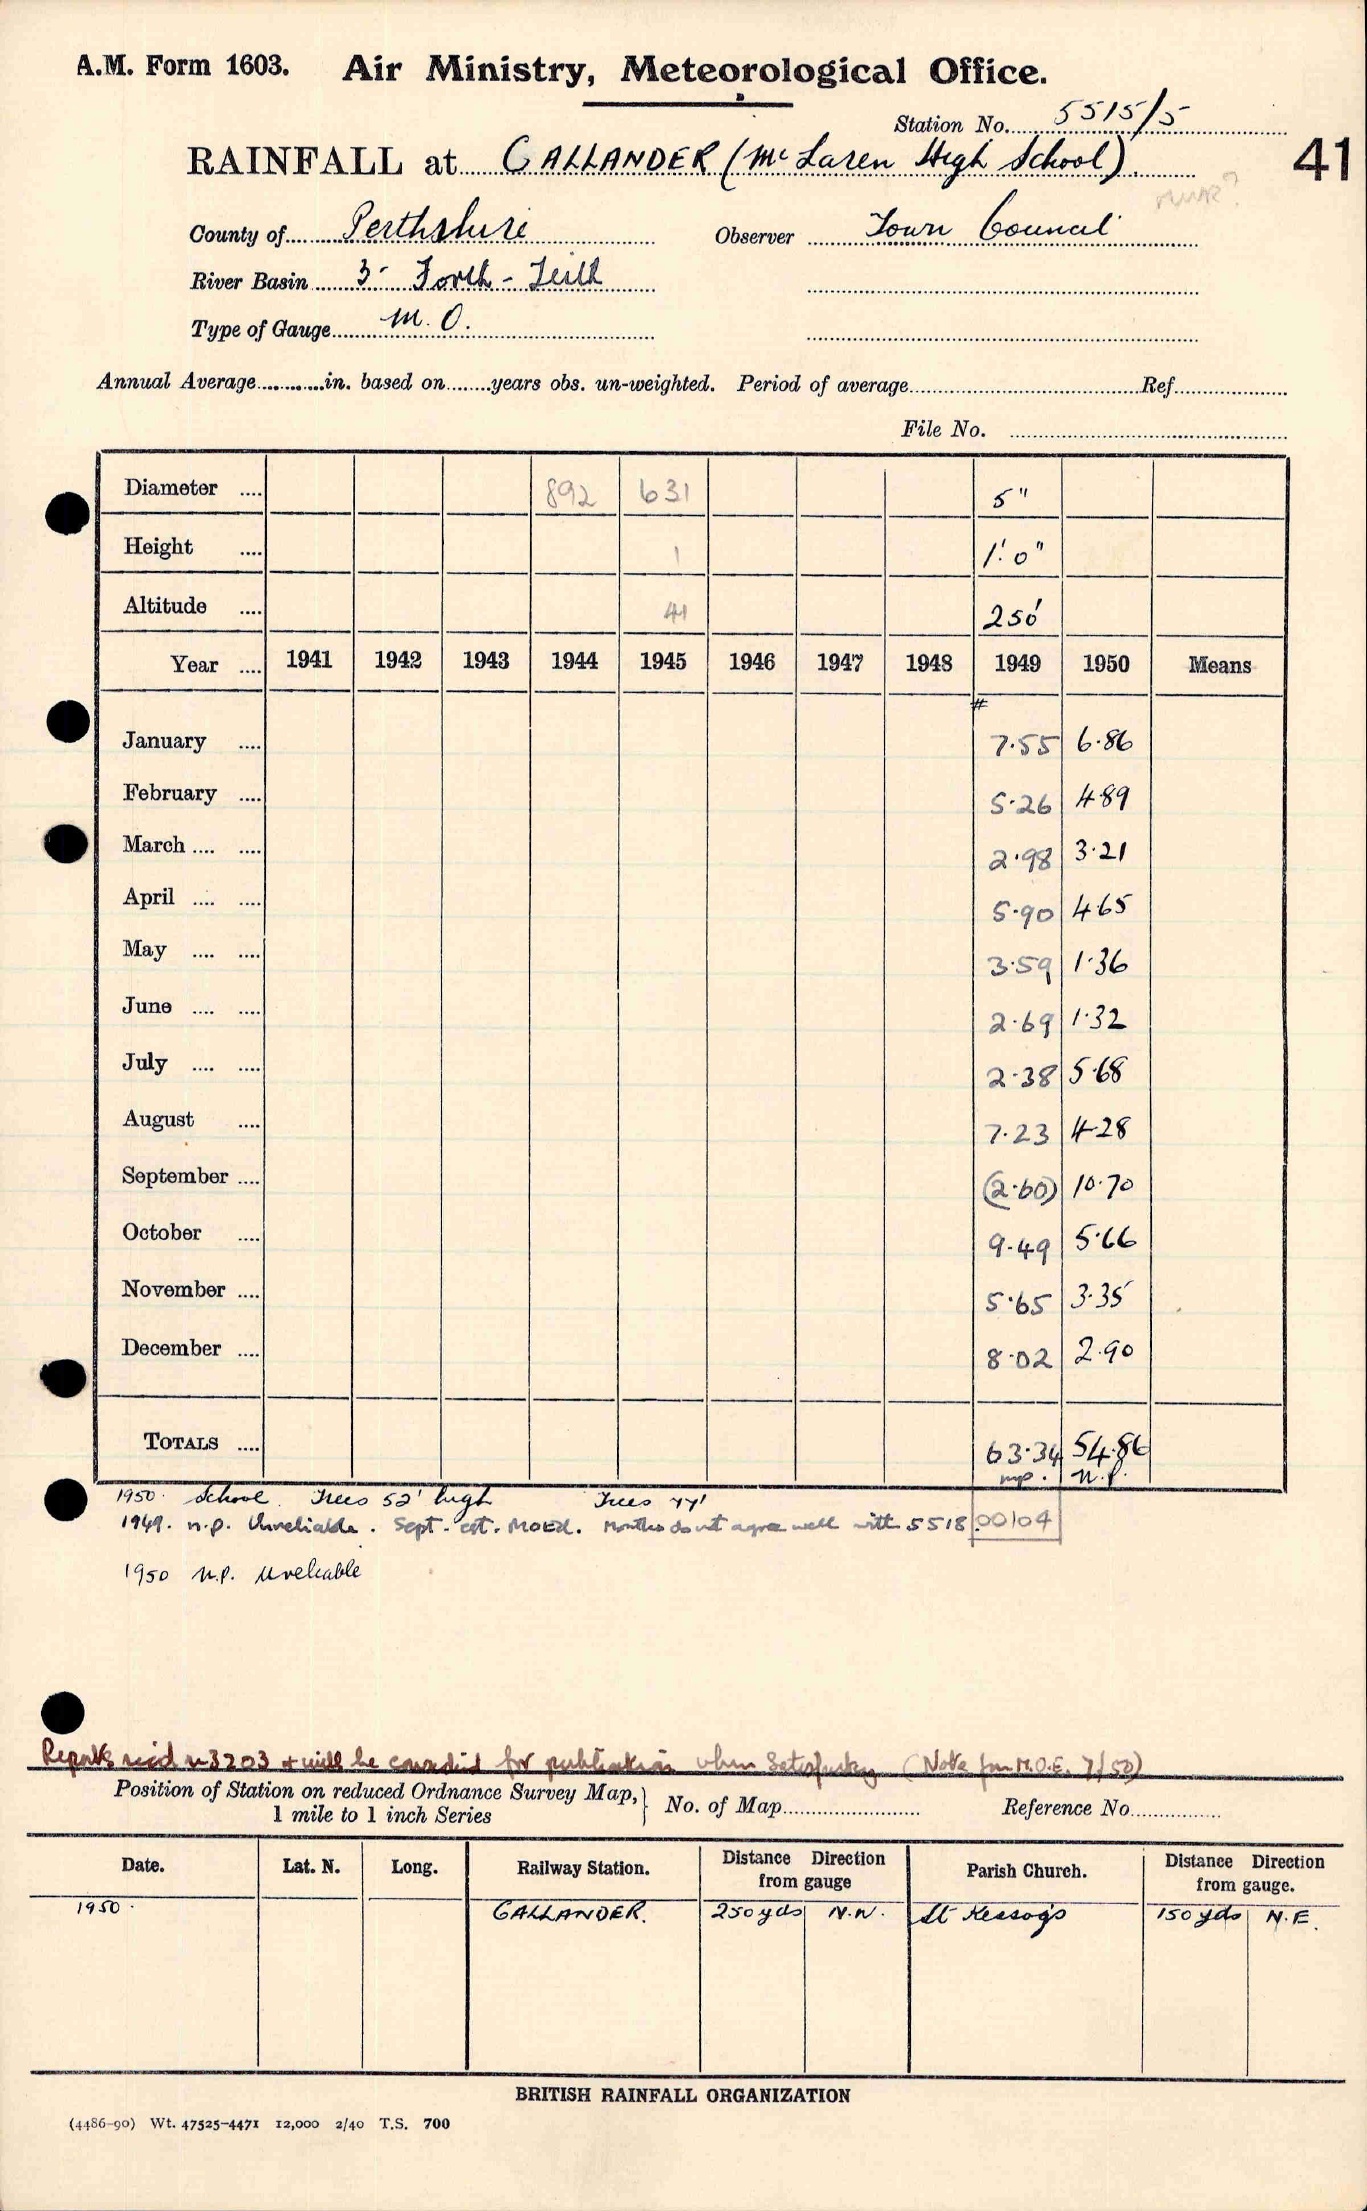 A.M. Form 1603. Air Ministry, Meteorological Office.
Station No. 5515/5
41
RAINFALL at CALLANDER (McLaren High School).
County of Perthshire Observer Town Council
River Basin 3- Forth - Teith
Type of Gauge M.O.
Annual Average in. based on years obs. un-weighted. Period of average Ref.
File No.
Diameter 892 631 5"
Height 1 1'0"
Altitude 41 250'
Year 1941 1942 1943 1944 1945 1946 1947 1948 1949 1950 Means
#
January 7.55 6.86
February 5.26 4.89
March 2.98 3.21
April 5.90 4.65
May 3.59 1.36
June 2.69 1.32
July 2.38 5.68
August 7.23 4.28
September (2.60) 10.70
October 9.49 5.66
November 5.65 3.35
December 8.02 2.90
TOTALS 63.34 54.86
n.p. n.p.
1950. School. Trees 52' high Trees 77'
1949. n.p. Unreliable. Sept. est. MOEd. Months do not agree well with 5518 00104
1950 n.p. Unreliable
Reports rec'd 3203 + will be considered for publication when satisfactory (Note from M.O.E. 7/50)
Position of Station on reduced Ordnance Survey Map, 1 mile to 1 inch Series } No. of Map Reference No.
Date. Lat. N. Long. Railway Station. Distance Direction from gauge Parish Church. Distance Direction from gauge.
1950. CALLANDER. 250 yds N.W. St Kessog's 150 yds N.E.
BRITISH RAINFALL ORGANIZATION
(4486-90) Wt. 47525-4471 12,000 2/40 T.S. 700